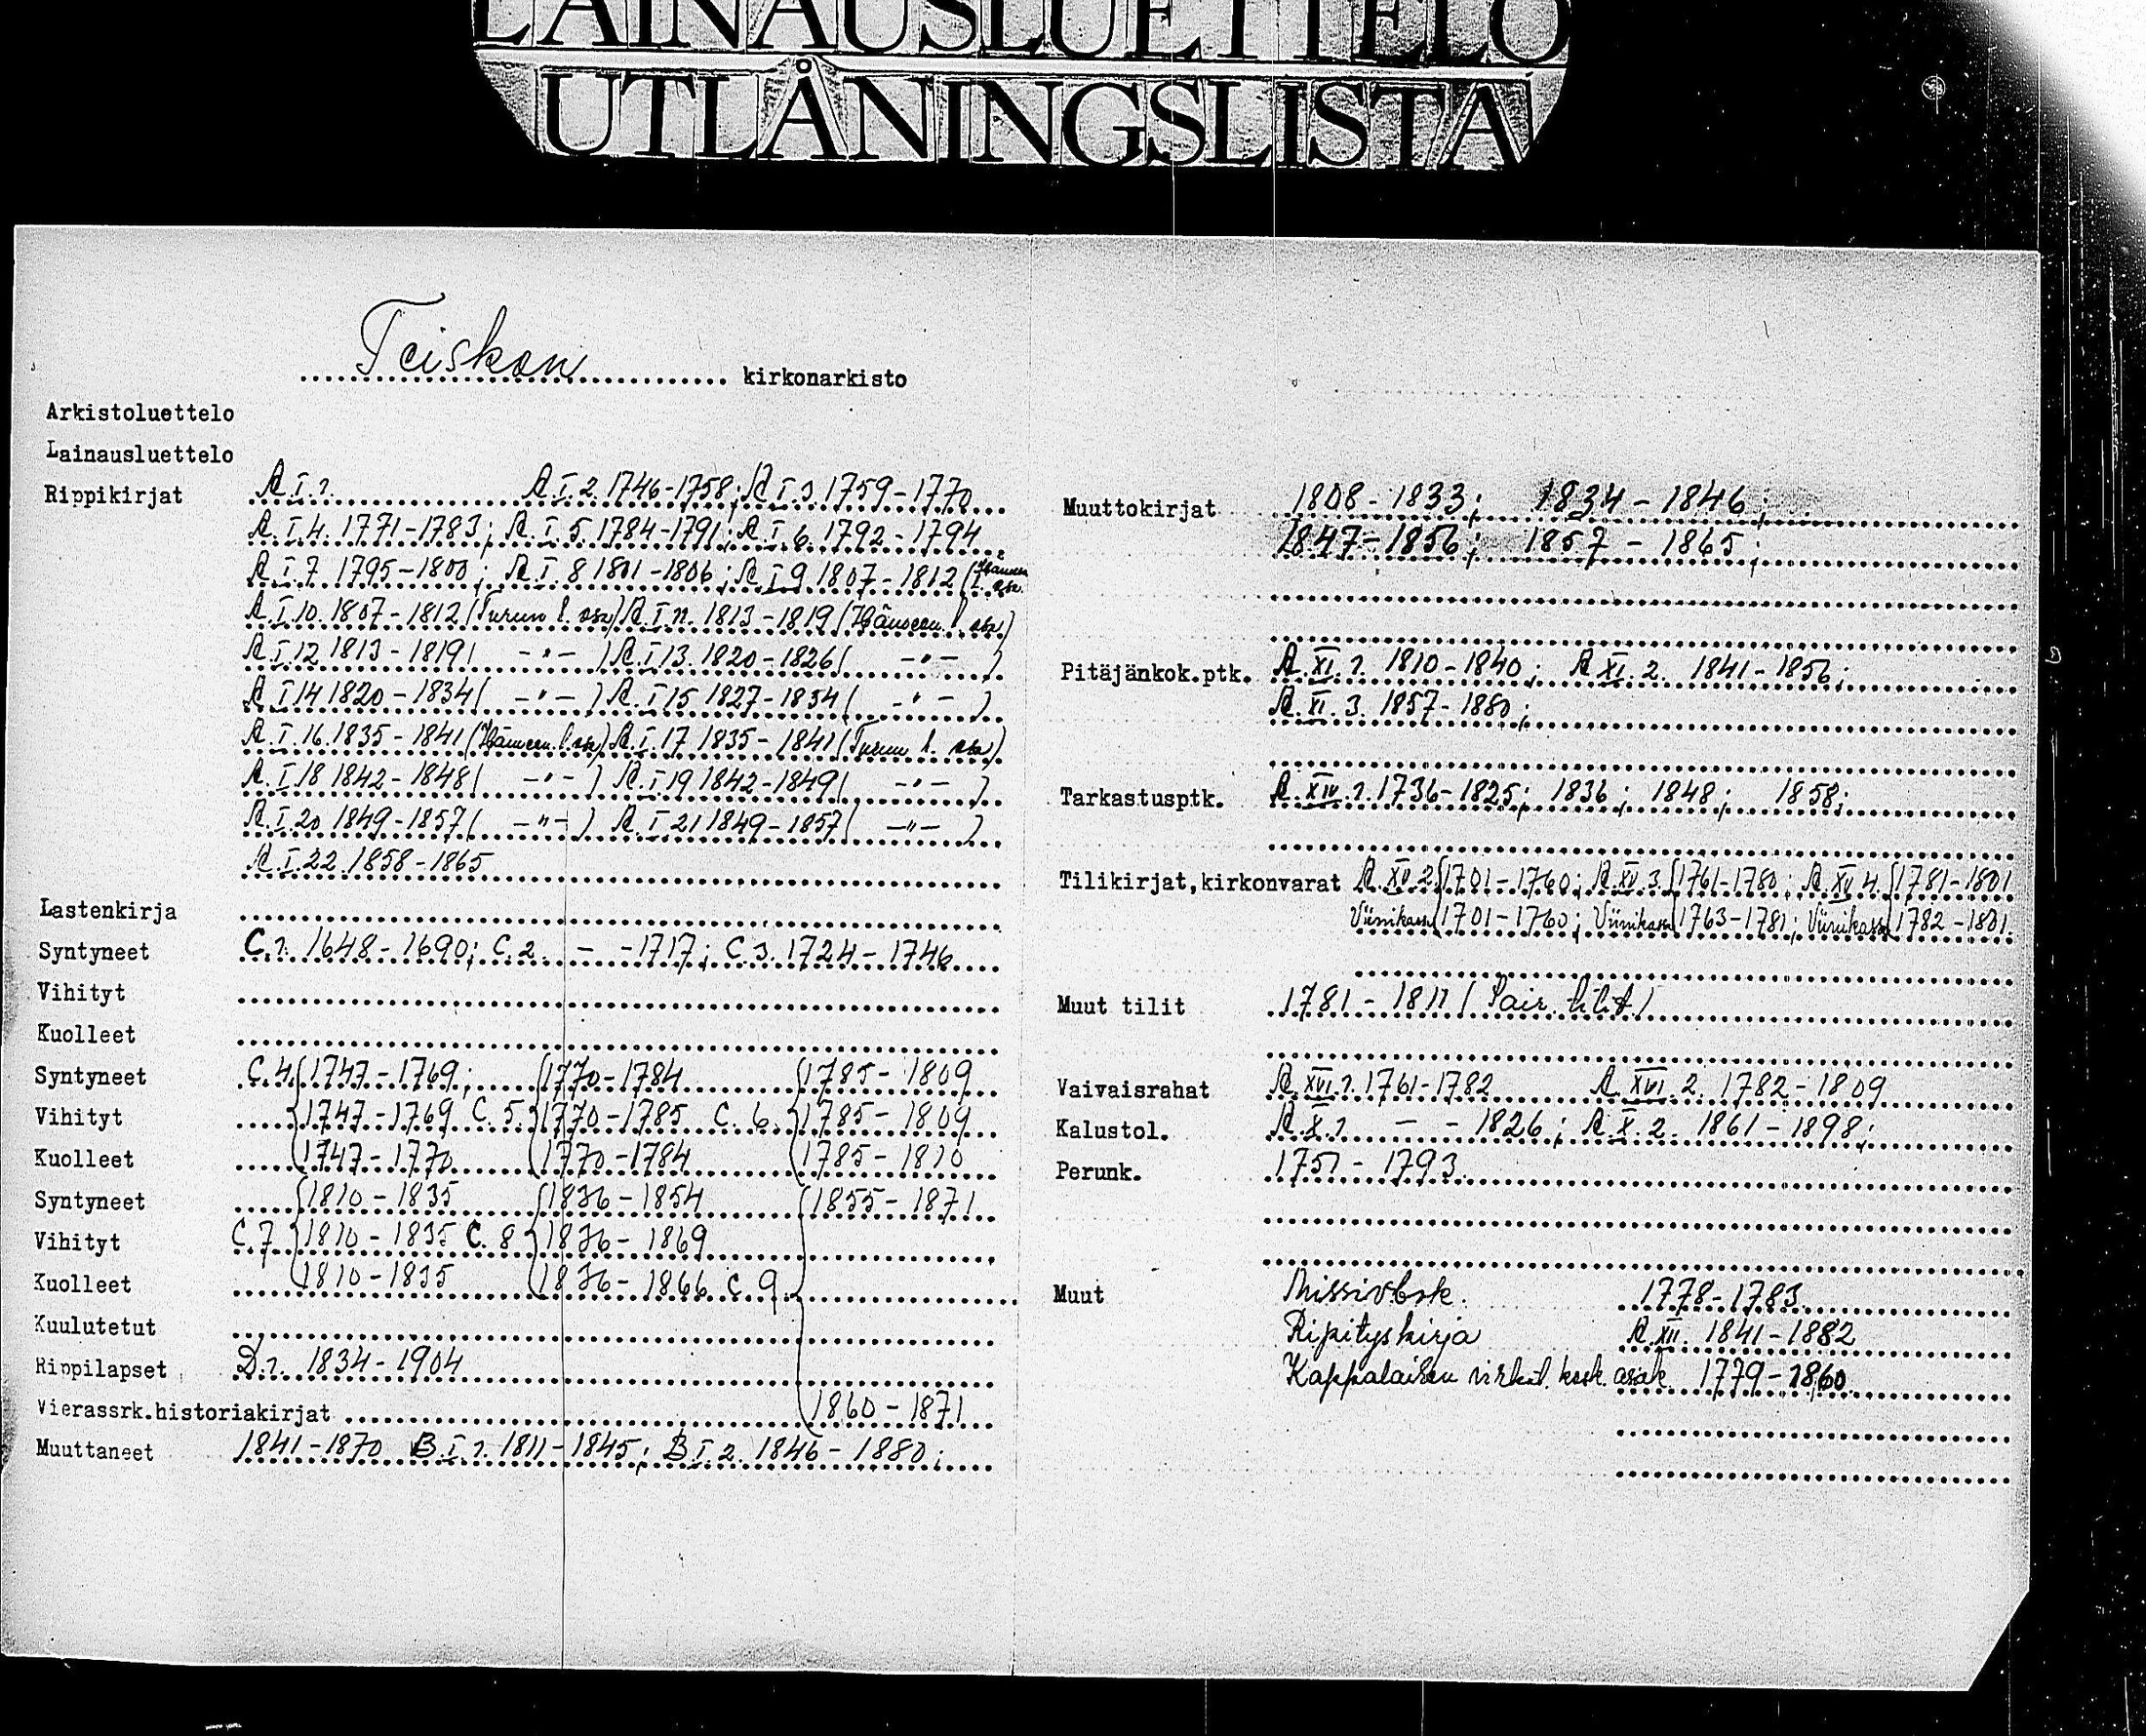 LAINAUSLUETTELO
UTLÅNINGSLISTA
Teiskon kirkonarkisto
Arkistoluettelo
Lainausluettelo
Rippikirjat A.I.1. A.I.2. 1746-1758; A.I.3. 1759-1770
A.I.4. 1771-1783; A.I.5. 1784-1791; A.I.6. 1792-1794
A.I.7 1795-1800; A.I.8 1801-1806; A.I.9 1807-1812 (Hämeen l. osa.
A.I.10. 1807-1812 (Turun l. osa) A.I.11. 1813-1819 (Hämeen l. osa)
A.I.12 1813-1819 ( -"- ) A.I.13. 1820-1826 ( -"- )
A.I.14 1820-1834 ( -"- ) A.I.15 1827-1834 ( -"- )
A.I.16. 1835-1841 (Hämeen l. osa) A.I.17 1835-1841 (Turun l. osa)
A.I.18 1842-1848 ( -"- ) A.I.19 1842-1849 ( -"- )
A.I.20 1849-1857 ( -"- ) A.I.21 1849-1857 ( -"- )
A.I.22. 1858-1865
Lastenkirja
Syntyneet C.1. 1648-1690; C.2. - -1717; C.3. 1724-1746
Vihityt
Kuolleet
Syntyneet C.4. 1747-1769; 1770-1784 1785-1809
Vihityt 1747-1769 C.5. 1770-1785 C.6. 1785-1809
Kuolleet 1747-1770 1770-1784 1785-1810
Syntyneet 1810-1835 1836-1854 1855-1871
Vihityt C.7 1810-1835 C.8 1836-1869
Kuolleet 1810-1835 1836-1866 C.9
Kuulutetut
Rippilapset D.1. 1834-1904
Vierassrk.historiakirjat 1860-1871
Muuttaneet 1841-1870 B.I.1. 1811-1845; B.I.2. 1846-1880;
Muuttokirjat 1808-1833; 1834-1846;
1847-1856; 1857-1865;
Pitäjänkok.ptk. A.XI.1. 1810-1840; A.XI.2. 1841-1856;
A.XI.3. 1857-1880;
Tarkastusptk. A.XIV.1. 1736-1825; 1836; 1848; 1858;
Tilikirjat,kirkonvarat A.XV.2. 1701-1760; A.XV.3. 1761-1780; A.XV.4. 1781-1801
Viinikassa 1701-1760; Viinikassa 1763-1781; Viinikassa 1782-1801.
Muut tilit 1781-1811 (Sair. tilit)
Vaivaisrahat A.XVI.1. 1761-1782 A.XVI.2. 1782-1809
Kalustol. A.X.1 - - 1826; A.X.2. 1861-1898;
Perunk. 1751-1793
Muut Missivbok. 1778-1783
Ripityskirja A.XII. 1841-1882
Kappalaisen virkat. kosk. asiak. 1779-1860